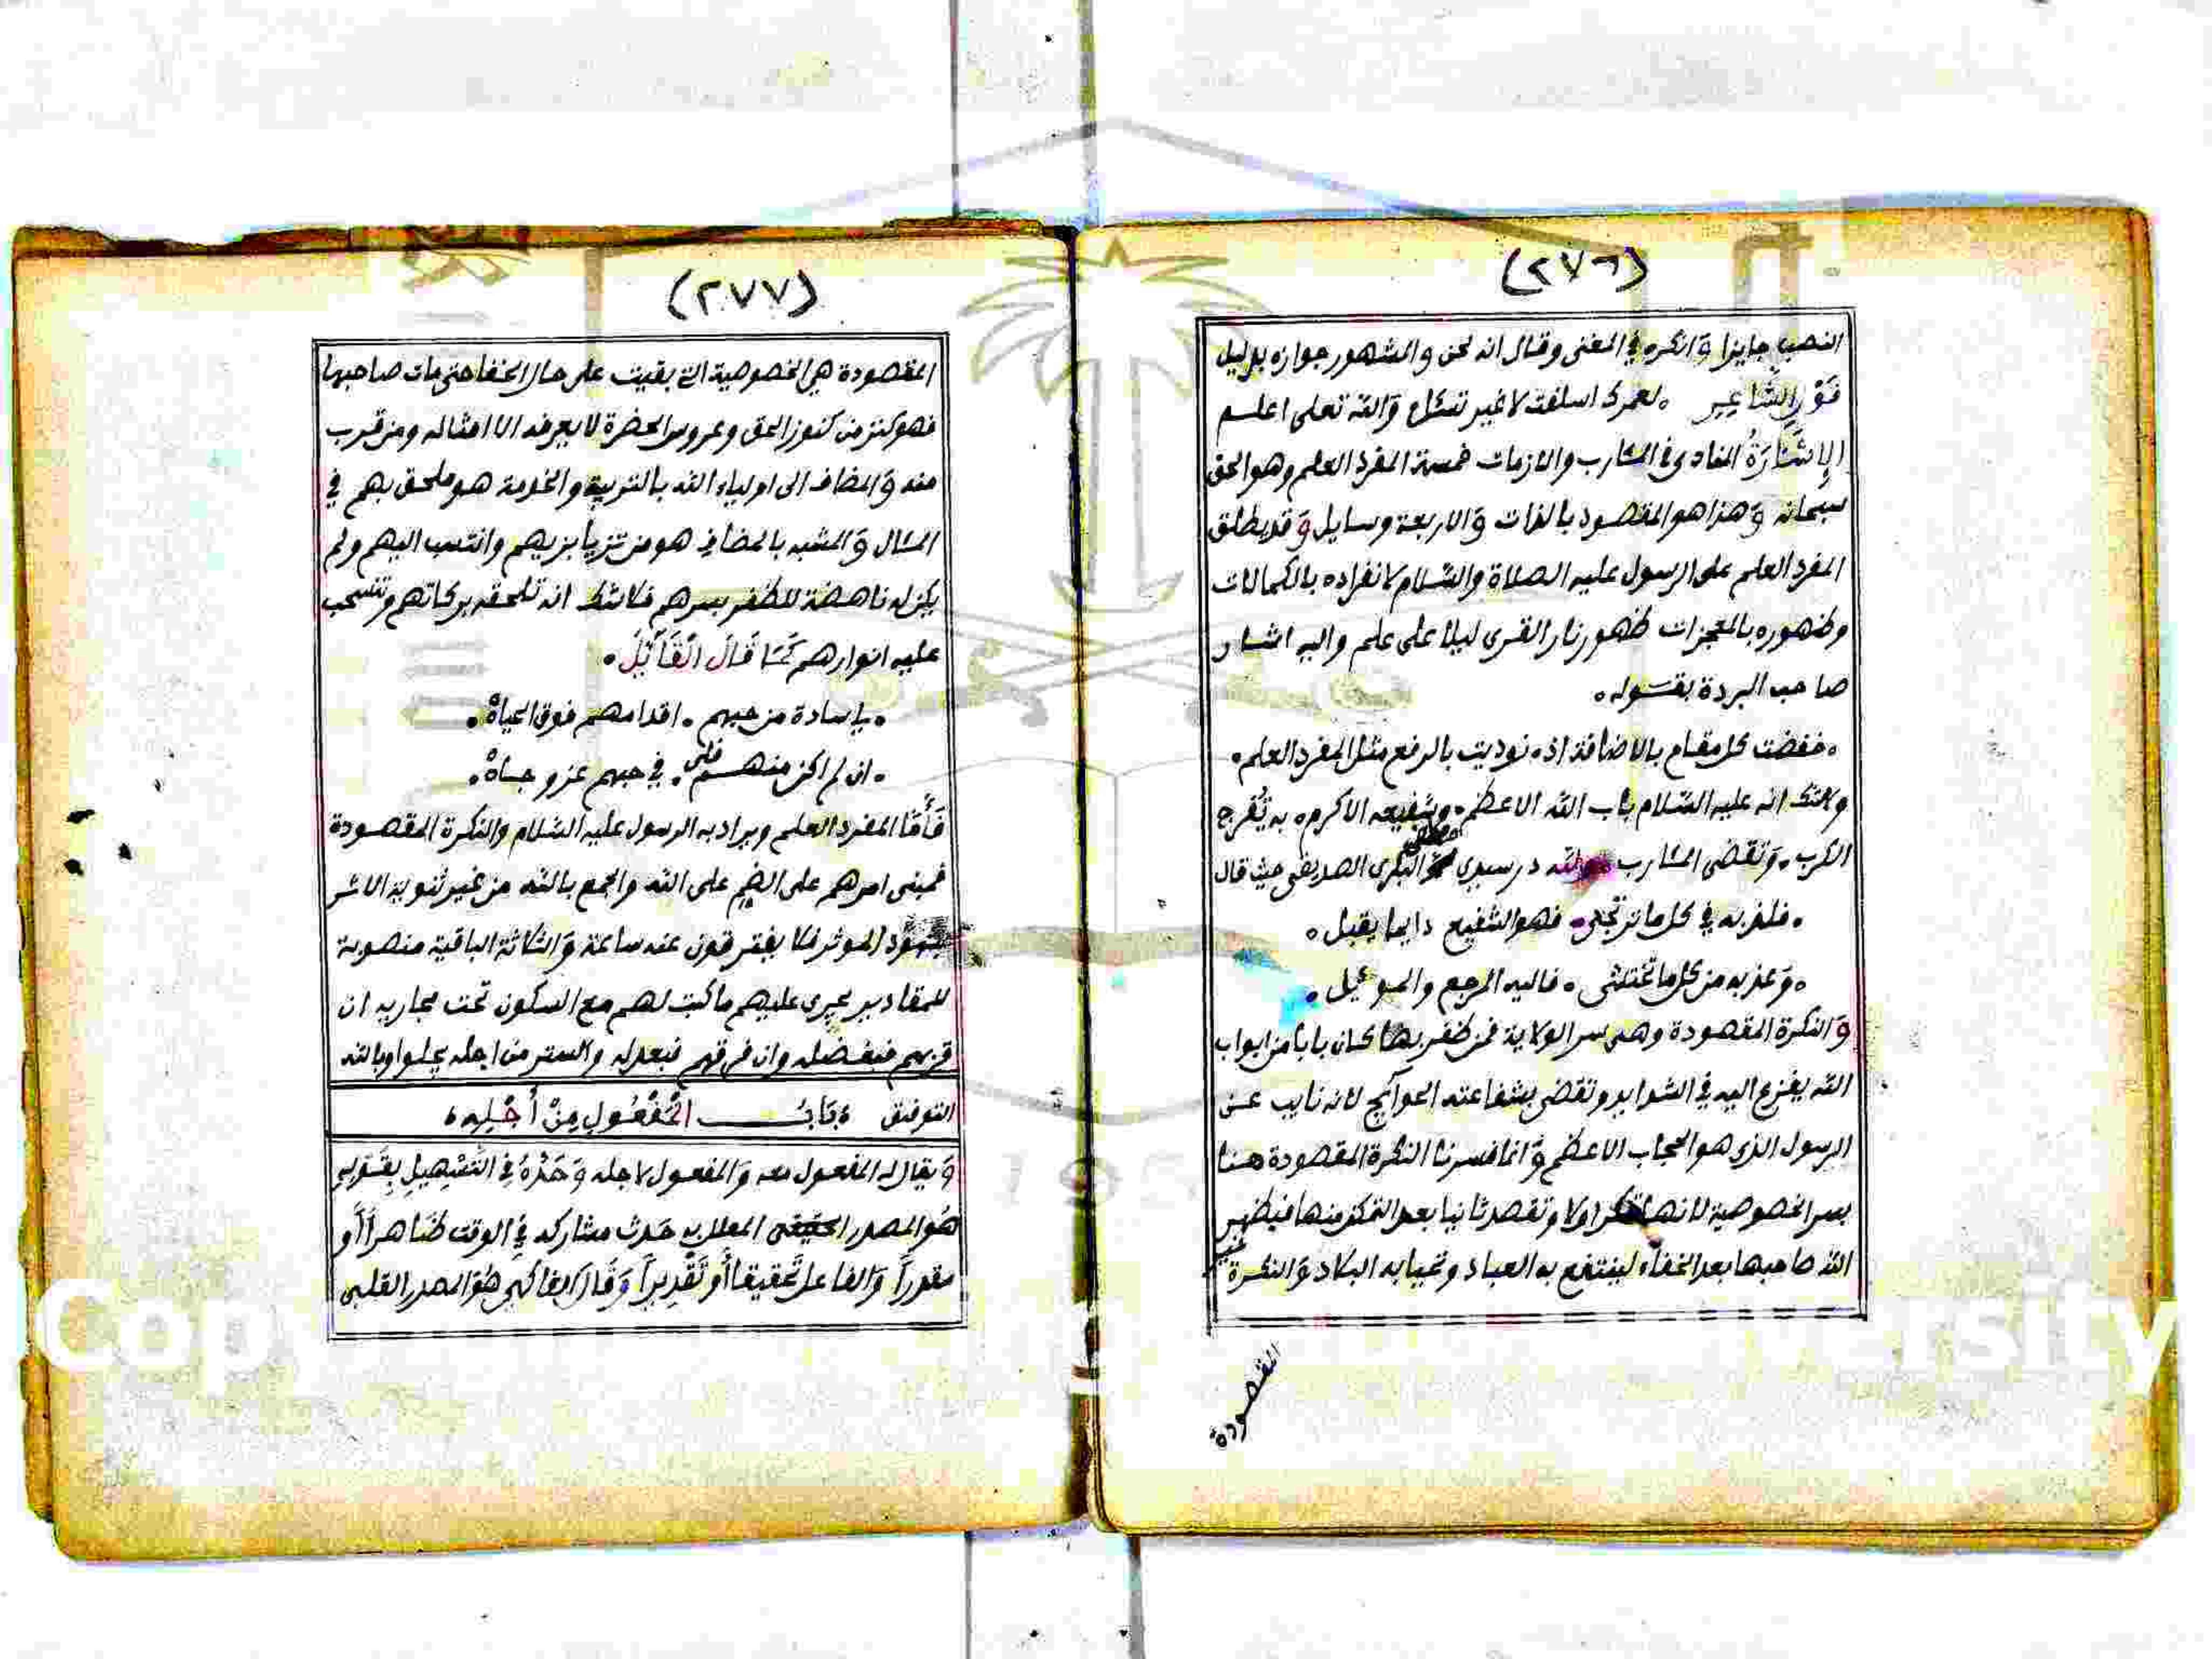 (٢٧٦)
النصب جايزا وانكره في المغنى وقال انه لحن والمشهور جوازه بدليل
قول الشاعر ٠ لعمرك اسلفت لا غير تسئل والله تعلى اعلم
الإشارة المنادى في المئارب والازمات خمسة المفرد العلم وهو الحق
سبحانه وهذا هو المقصود بالذات والاربعة وسايل وقد يطلق
المفرد العلم على الرسول عليه الصلاة والسّلام لانفراده بالكمالات
وظهوره بالمعجزات ظهور نار القرى ليلا على علم واليه اشار
صاحب البردة بقوله ٠
٠ خفضت كل مقام بالاضافة اذ ٠ نوديت بالرفع مثل المفرد العلم ٠
ولا شك انه عليه السّلام باب الله الاعظم ٠ وشفيعه الاكرم ٠ به تُفرج
الكرب ٠ وتقضى المئارب ولله در سيدي البكرى الصديقي حيث قال
٠ فلذ به في كل ما ترتجى ٠ فهو الشفيع دايما يقبل ٠
٠ وعذ به من كل ما تختشى ٠ فاليه المرجع والموئيل ٠
والنكرة المقصودة وهى سر الولاية فمن ظفر بها كان بابا من ابواب
الله يفزع اليه في الشدايد وتقضى بشفاعته الحوآيج لانه نايب عن
الرسول الذي هو الحجاب الاعظم وانما فسرنا النكرة المقصودة هنا
بسر الخصوصية لانها اولا وتقصد ثانيا بعد التمكن منها فيظهر
الله صاحبها بعد الخفاء لينتفع به العباد وتحيا به البلاد والنكرة غير
المقصودة
(٢٧٧)
المقصودة هي الخصوصية التي بقيت على حال الخفا حتى مات صاحبها
فهو كنز من كنوز الحق وعروس الحضرة لا يعرفه الا امثاله ومن قرب
منه والمضاف الى اولياء الله بالتربية والخدمة هو ملحق بهم في
المئال والمشبه بالمضاف هو من تزيا بزيهم وانتسب اليهم ولم
يكن له ناهضة للظفر بسرهم فلا شك انه تلحقه بركاتهم وتنسحب
عليه انوارهم كما قال القآئل ٠
٠ يا سادة من حبهم ٠ اقدامهم فوق الجباة ٠
٠ ان لم اكن منهم فلي ٠ في حبهم عز وجاة ٠
فأما المفرد العلم ويراد به الرسول عليه السّلام والنكرة المقصودة
فمبنى امرهم على الضم على الله والجمع بالله من غير ثنوية الاثر
شهود الموثر فلا يفترقون عنه ساعة والثلاثة الباقية منصوبة
للمقادير يجرى عليهم ما كتب لهم مع السكون تحت مجاريه ان
قربهم فبفضله وان فرقهم فبعدله والستر من اجله يحلوا وبالله
التوفيق ٠ باب المفعول من أجله ٠
ويقال له المفعول معه والمفعول لاجله وحده في التسهيل بقوله
هو المصدر المعلل به حدث مشاركه في الوقت ظاهرا أو
مقدرا والفاعل تحقيقا أو تقديرا وقال الفاكهي هو المصدر القلبى